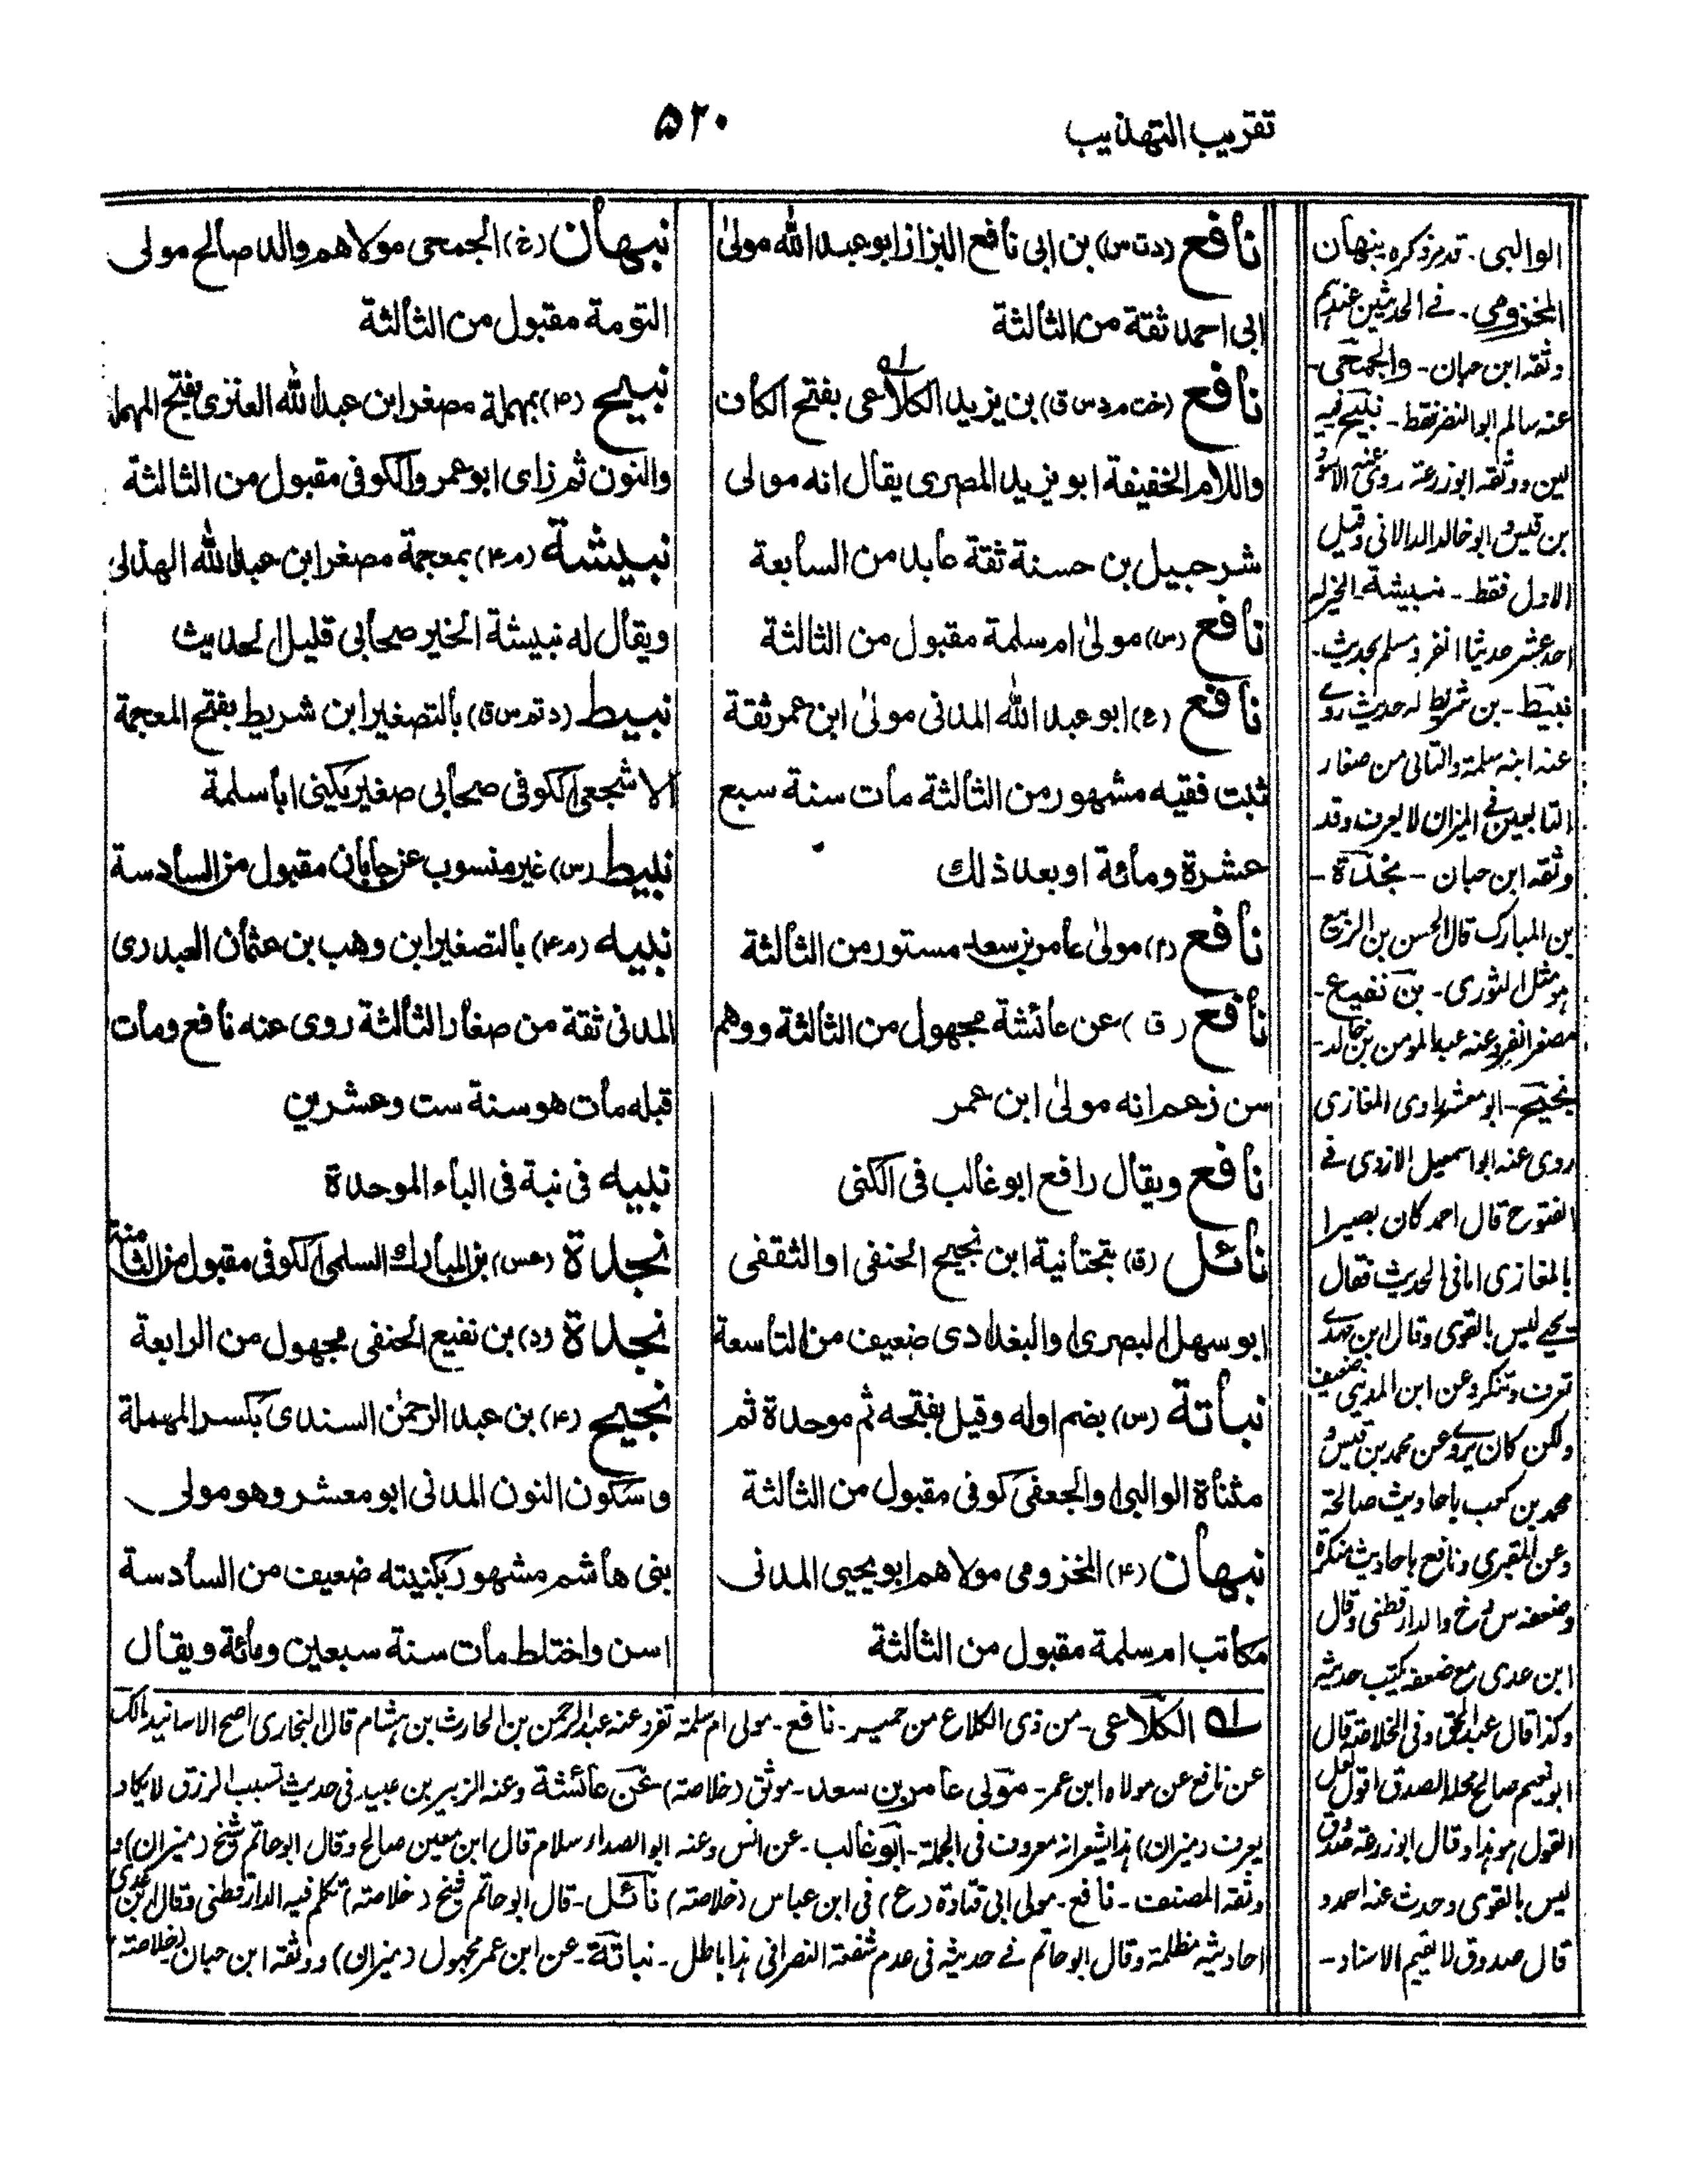 تقريب التهذيب
۵۲۰
نافع (د ت س) بن ابی نافع البزاز ابو عبد الله مولیٰ
ابی احمد ثقة من الثالثة
نافع (خت م د س ق) بن يزيد الكلاعی بفتح الكاف
واللام الخفيفة ابو يزيد المصری يقال انه مولی
شرحبيل بن حسنة ثقة عابد من السابعة
نافع (س) مولیٰ ام سلمة مقبول من الثالثة
نافع (ع) ابو عبد الله المدنی مولیٰ ابن عمر ثقة
ثبت فقيه مشهور من الثالثة مات سنة سبع
عشرة ومائة او بعد ذلك
نافع (م) مولیٰ عامر بن سعد مستور من الثالثة
نافع (ق) عن عائشة مجهول من الثالثة ووهم
من زعم انه مولیٰ ابن عمر
نافع ويقال رافع ابو غالب فی الكنی
نائل (ق) بتحتانية ابن نجيح الحنفی او الثقفی
ابو سهل البصری او البغدادی ضعيف من التاسعة
نباتة (س) بضم اوله وقيل بفتحه ثم موحدة ثم
مثناة الوالبی او الجعفی كوفی مقبول من الثالثة
نبهان (۴) المخزومی مولاهم ابو يحيی المدنی
مكاتب ام سلمة مقبول من الثالثة
نبهان (غ) الجمحی مولاهم والد صالح مولی
التومة مقبول من الثالثة
نبيح (۴) بمهملة مصغر ابن عبد الله العنزی بفتح المهملة
والنون ثم زای ابو عمرو الكوفی مقبول من الثالثة
نبيشة (م ۴) بمعجمة مصغر ابن عبد الله الهذلی
ويقال له نبيشة الخير صحابی قليل الحديث
نبيط (د تم س ق) بالتصغير ابن شريط بفتح المعجمة
الاشجعی الكوفی صحابی صغير يكنی ابا سلمة
نبيط (س) غير منسوب عن جابان مقبول من السادسة
نبيه (م ۴) بالتصغير ابن وهب بن عثمان العبدری
المدنی ثقة من صغار الثالثة روی عنه نافع ومات
قبله مات هو سنة ست وعشرين
نبيه فی نبة فی الباء الموحدة
نجدة (عس) بن المبارك السلمی الكوفی مقبول من الثامنة
نجدة (د) بن نفيع الحنفی مجهول من الرابعة
نجيح (۴) بن عبد الرحمٰن السندی بكسر المهملة
وسكون النون المدنی ابو معشر وهو مولی
بنی هاشم مشهور بكنيته ضعيف من السادسة
اسن واختلط مات سنة سبعين ومائة ويقال
الوالبی - قد مر ذكره نبهان
المخزومی - فے الحديثين عندهم
وثقه ابن حبان - والجمحی -
عنه سالم ابو النضر فقط - نبيح فيه
لين ووثقه ابو زرعة روی عنه الاسود
بن قيس وابو خالد الدالانی وقيل
الاول فقط - نبيشة الخير له
احد عشر حديثا انفرد مسلم بحديث -
نبيط - بن شريط له حديث روے
عنه ابنه سلمة والثانی من صغار
التابعين فی الميزان لا يعرف وقد
وثقه ابن حبان - نجدة -
بن المبارك قال الحسن بن الربيع
هو مثل الثوری - بن نفيع -
مصغر انفرد عنه عبد المومن بن خالد -
نجيح - ابو معشر راوی المغازی
روی عنه ابو اسمعيل الازدی فے
الفتوح قال احمد كان بصيرا
بالمغازی اما فی الحديث فقال
يحيے ليس بالقوی وقال ابن مهدے
تعرف وتنكر وعن ابن المدينی ضعيف
ولكن كان يروے عن محمد بن قيس و
محمد بن كعب باحاديث صالحة
وعن المقبری ونافع باحاديث منكرة
وضعفه س خ والدارقطنی وقال
ابن عدی مع ضعفه يكتب حديثه
وكذا قال عبد الحق وفی الخلاصة قال
ابو نعيم صالح محله الصدق اقول لعل
القول هو هذا وقال ابو زرعة صدوق
ليس بالقوی وحدث عنه احمد و
قال صدوق لا يقيم الاسناد -
له الكلاعی - من ذی الكلاع من حمير - نافع - مولی ام سلمة تفرد عنه عبد الرحمن بن الحارث بن هشام قال البخاری اصح الاسانيد مالك
عن نافع عن مولاه ابن عمر - مولی عامر بن سعد - موثق (خلاصة) عن عائشة وعنه الزبير بن عبيد فی حديث تسبب الرزق لا يكاد
يعرف (ميزان) هذا يشعر انه معروف فی الجملة - ابو غالب - عن انس وعنه ابو الصداء سلام قال ابن معين صالح وقال ابو حاتم شيخ (ميزان) و
وثقه المصنف - نافع - مولی ابی قتادة (ع) فی ابن عباس (خلاصة) نائل - قال ابو حاتم شيخ (خلاصة) تكلم فيه الدارقطنی وقال ابن عدی
احاديثه مظلمة وقال ابو حاتم فے حديثه فی عدم شفعة النصرانی هذا باطل - نباتة - عن ابن عمر مجهول (ميزان) ووثقه ابن حبان خلاصة